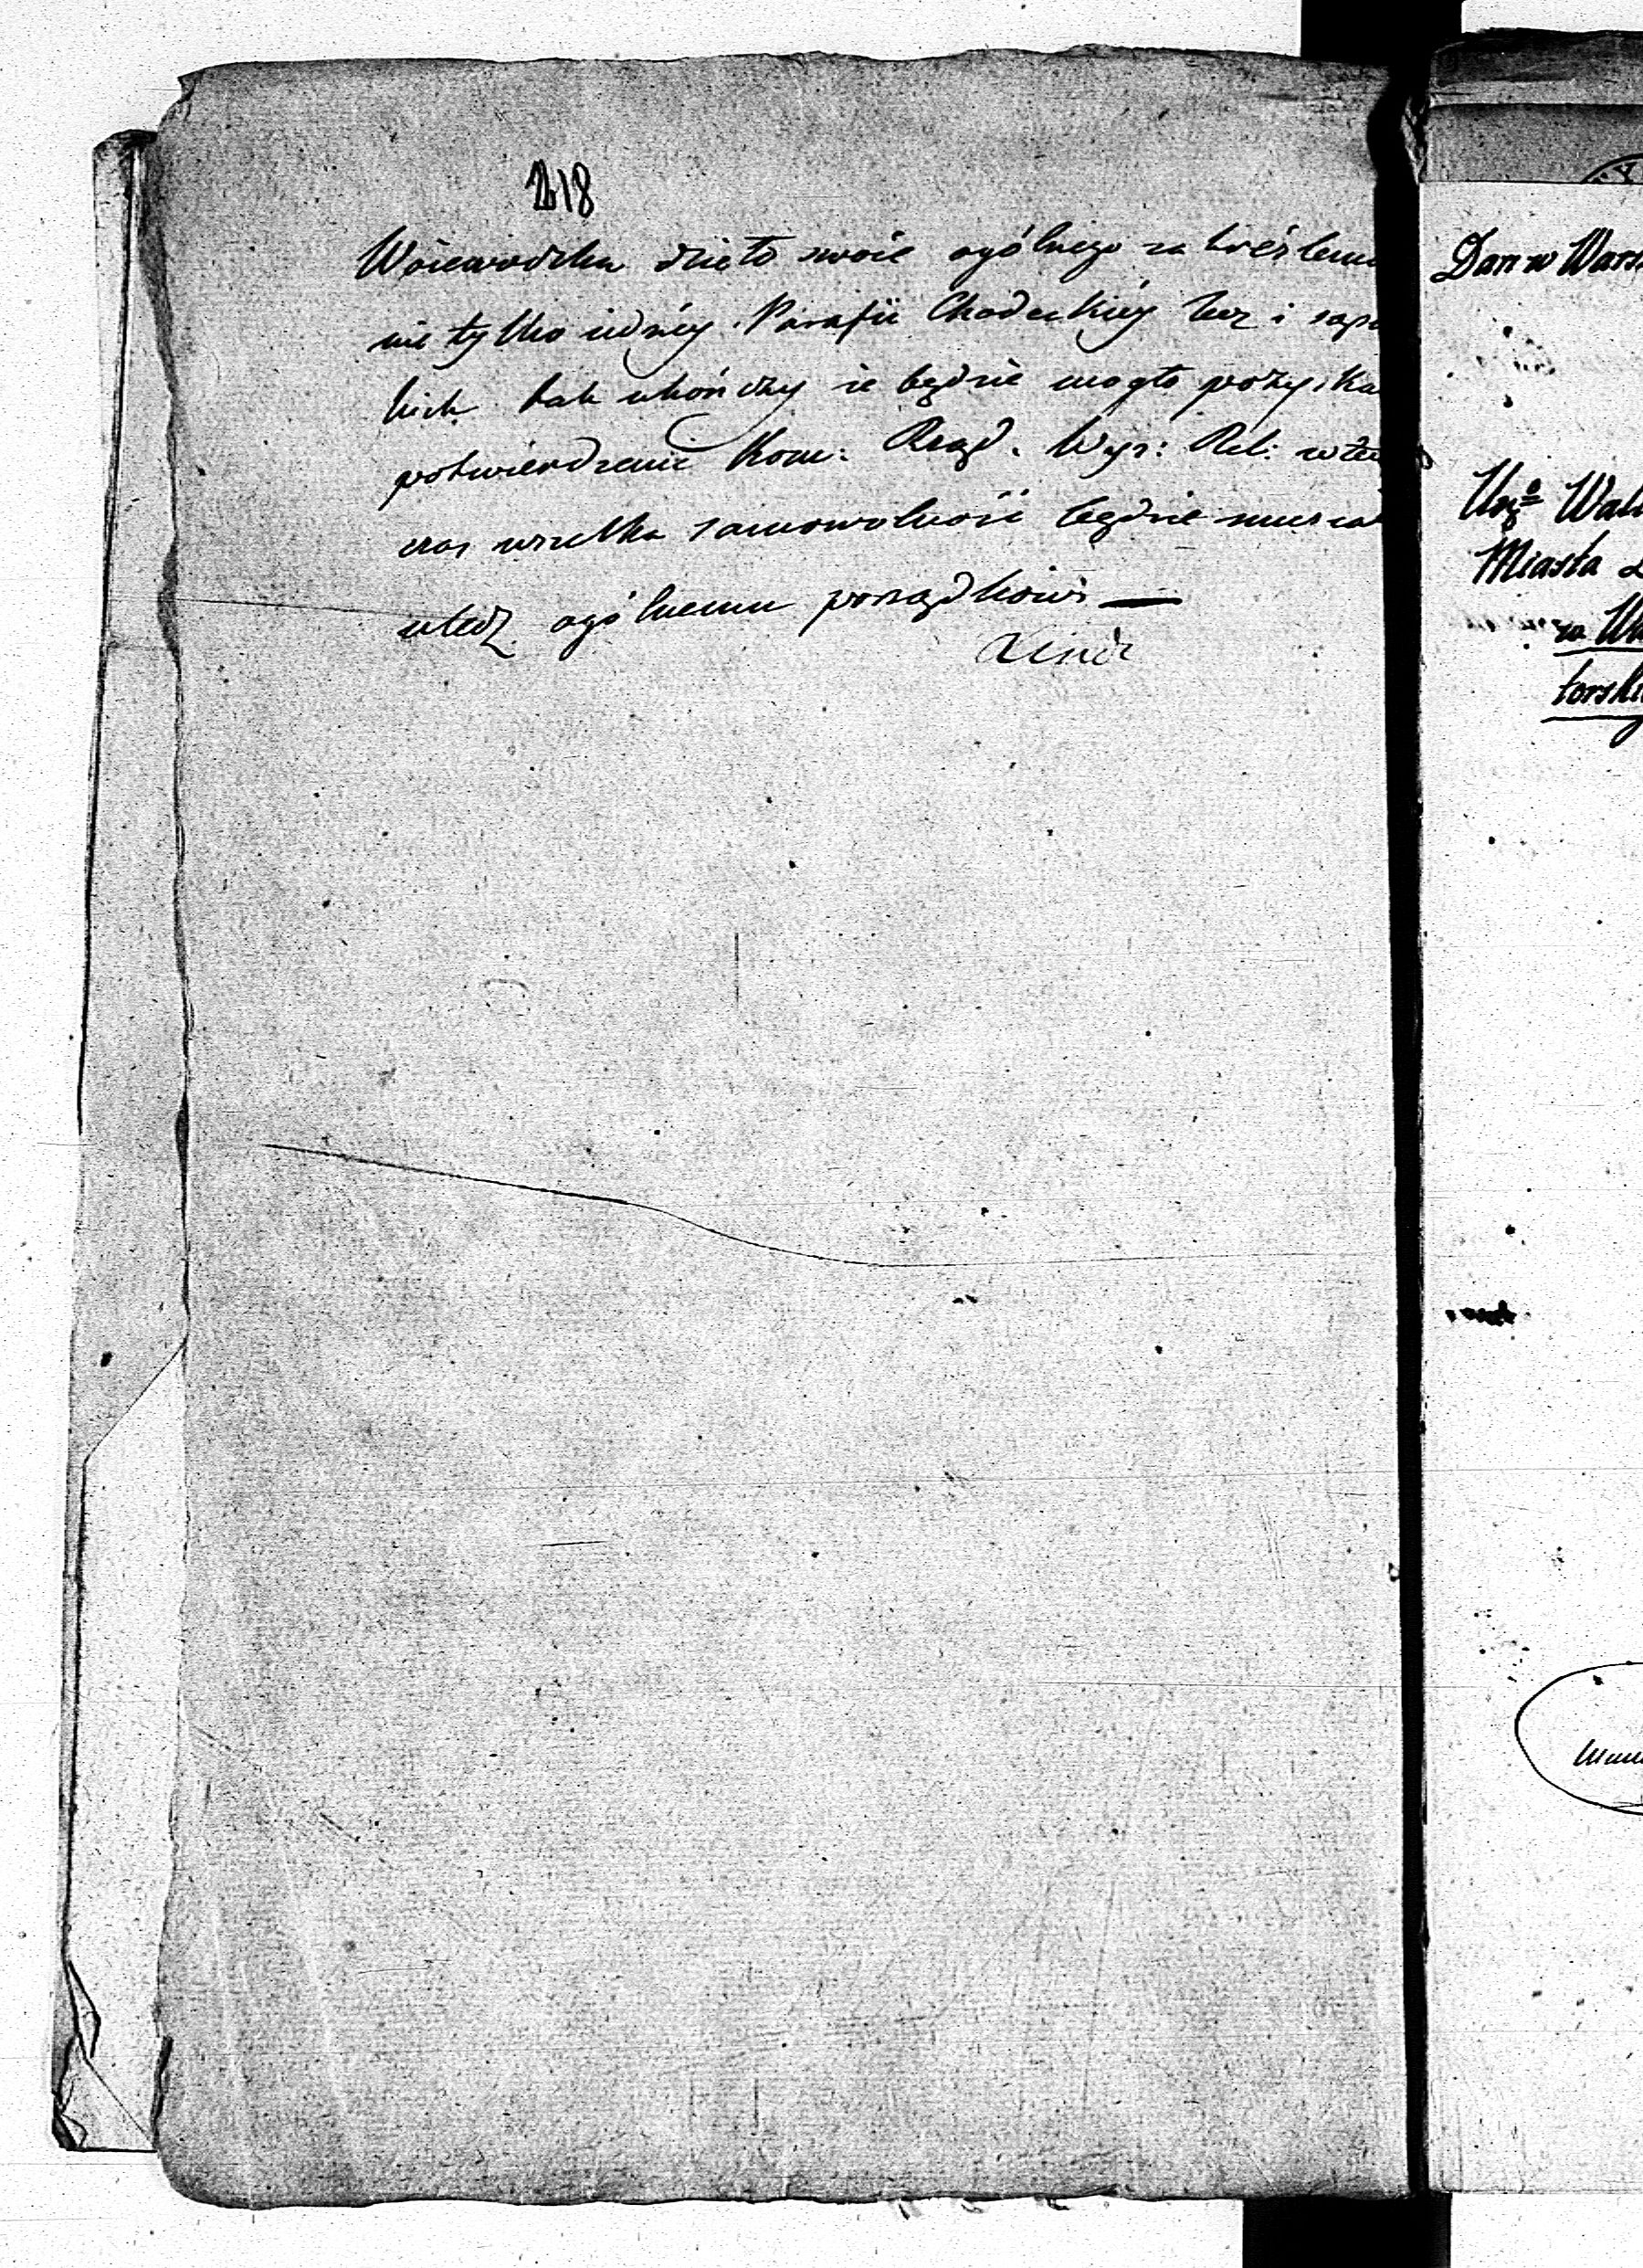 218
Woiewodzka dzieło swoie ogólnego zakreśleni
nie tylko iednéy Parafii Chodeckiéy lecz i
kich tak ukończy że będzie mogło pozyska
potwierdzenie Kom: Rząd. Wyz: Rel: wten
czas wszelka samowolność będzie musiał
uledz ogólnemu porządkowi —
Dan w Wars
Miasta
torski